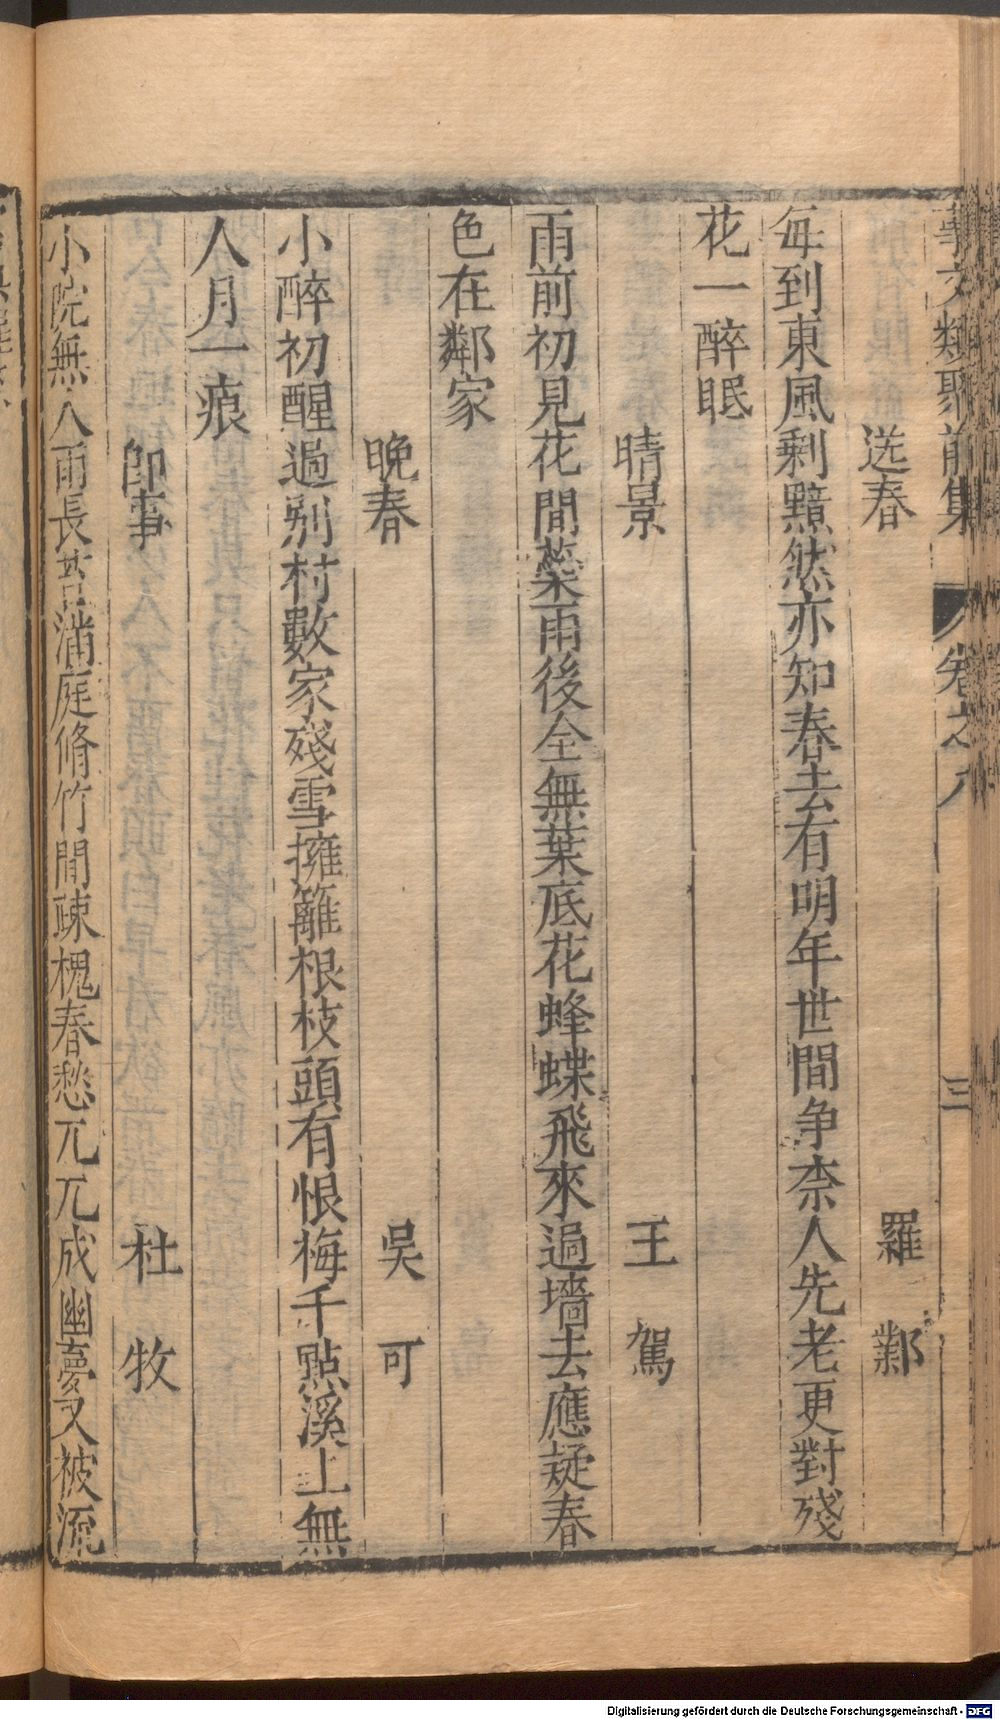 事文類聚前集 卷之八 三
送春 羅鄴
每到東風剩黯然亦知春去有明年世間爭柰人先老更對殘
花一醉眠
晴景 王駕
雨前初見花間蘂雨後全無葉底花蜂蝶飛來過墻去應疑春
色在鄰家
晚春 吳可
小醉初醒過别村數家殘雪擁籬根枝頭有恨梅千點溪上無
人月一痕
即事 杜牧
小院無人雨長苔滿庭脩竹間疎槐春愁兀兀成幽夢又被流
Digitalisierung gefördert durch die Deutsche Forschungsgemeinschaft - DFG